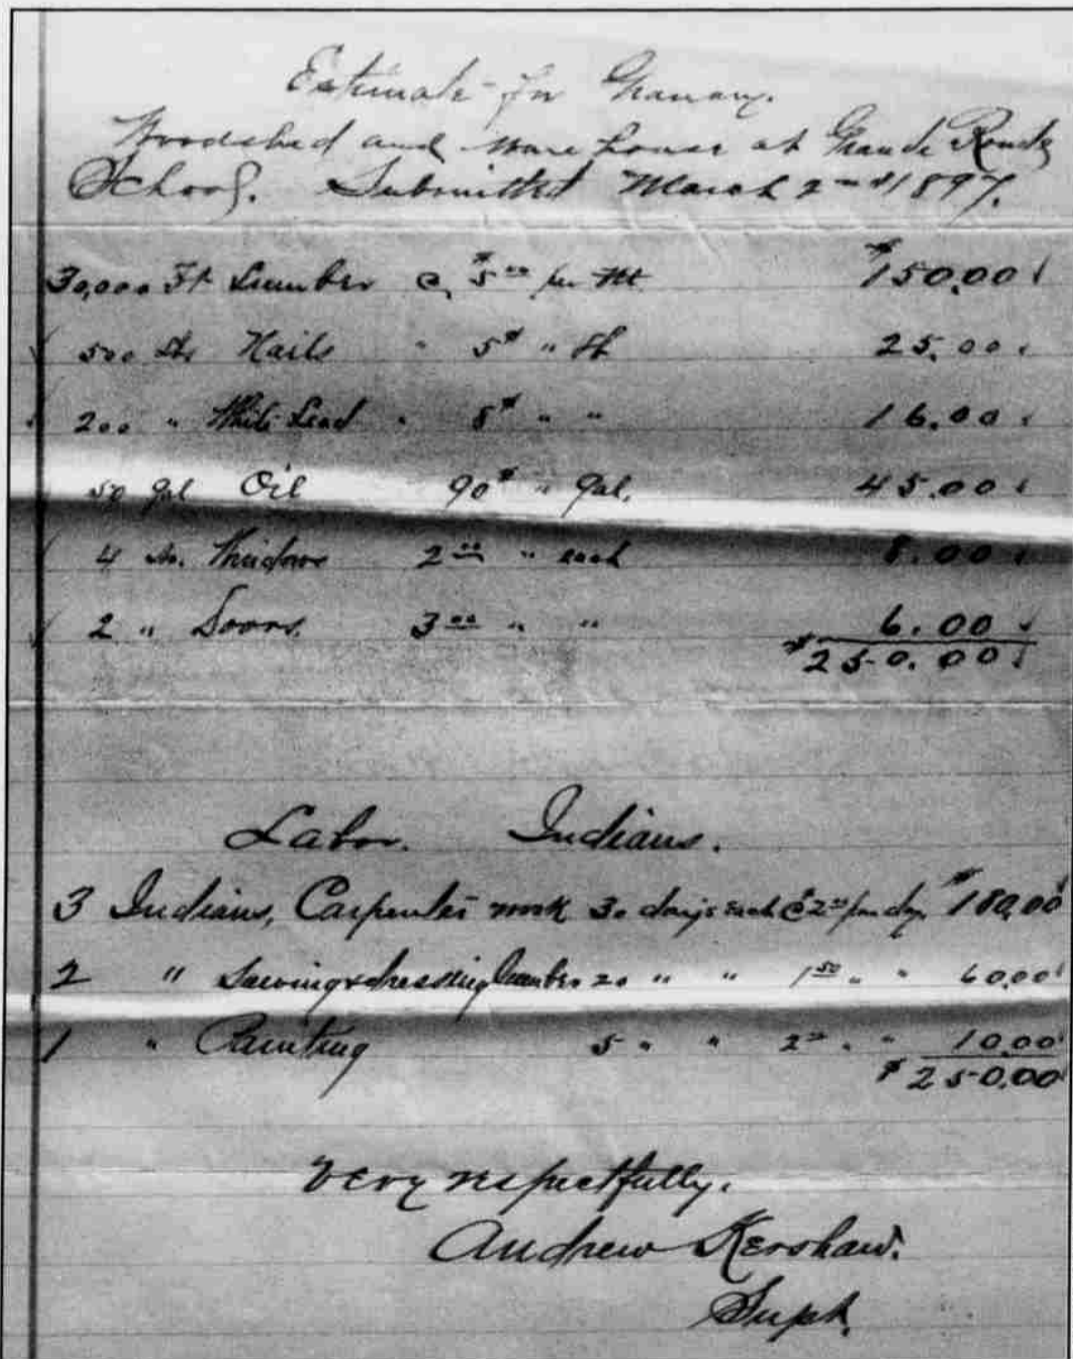 Estimate for Granary.
Woodshed and ware house at Grande Ronde
School. Submitted March 2nd 1897.
30,000 Ft Lumber @ $5.00 per M $150.00
500 lbs Nails " 5¢ " lb 25.00
200 " White Lead " 8¢ " " 16.00
50 gal Oil 90¢ " Gal. 45.00
4 Windows 2.00 " each 8.00
2 " Doors. 3.00 " " 6.00
$250.00
Labor. Indians.
3 Indians, Carpenter work 30 days each @ $2.00 per day. $180.00
2 " Sawing & dressing lumber 20 " " 1.50 " " 60.00
1 " Painting 5 " " 2.00 " " 10.00
$250.00
Very respectfully.
Andrew Kershaw.
Supt.